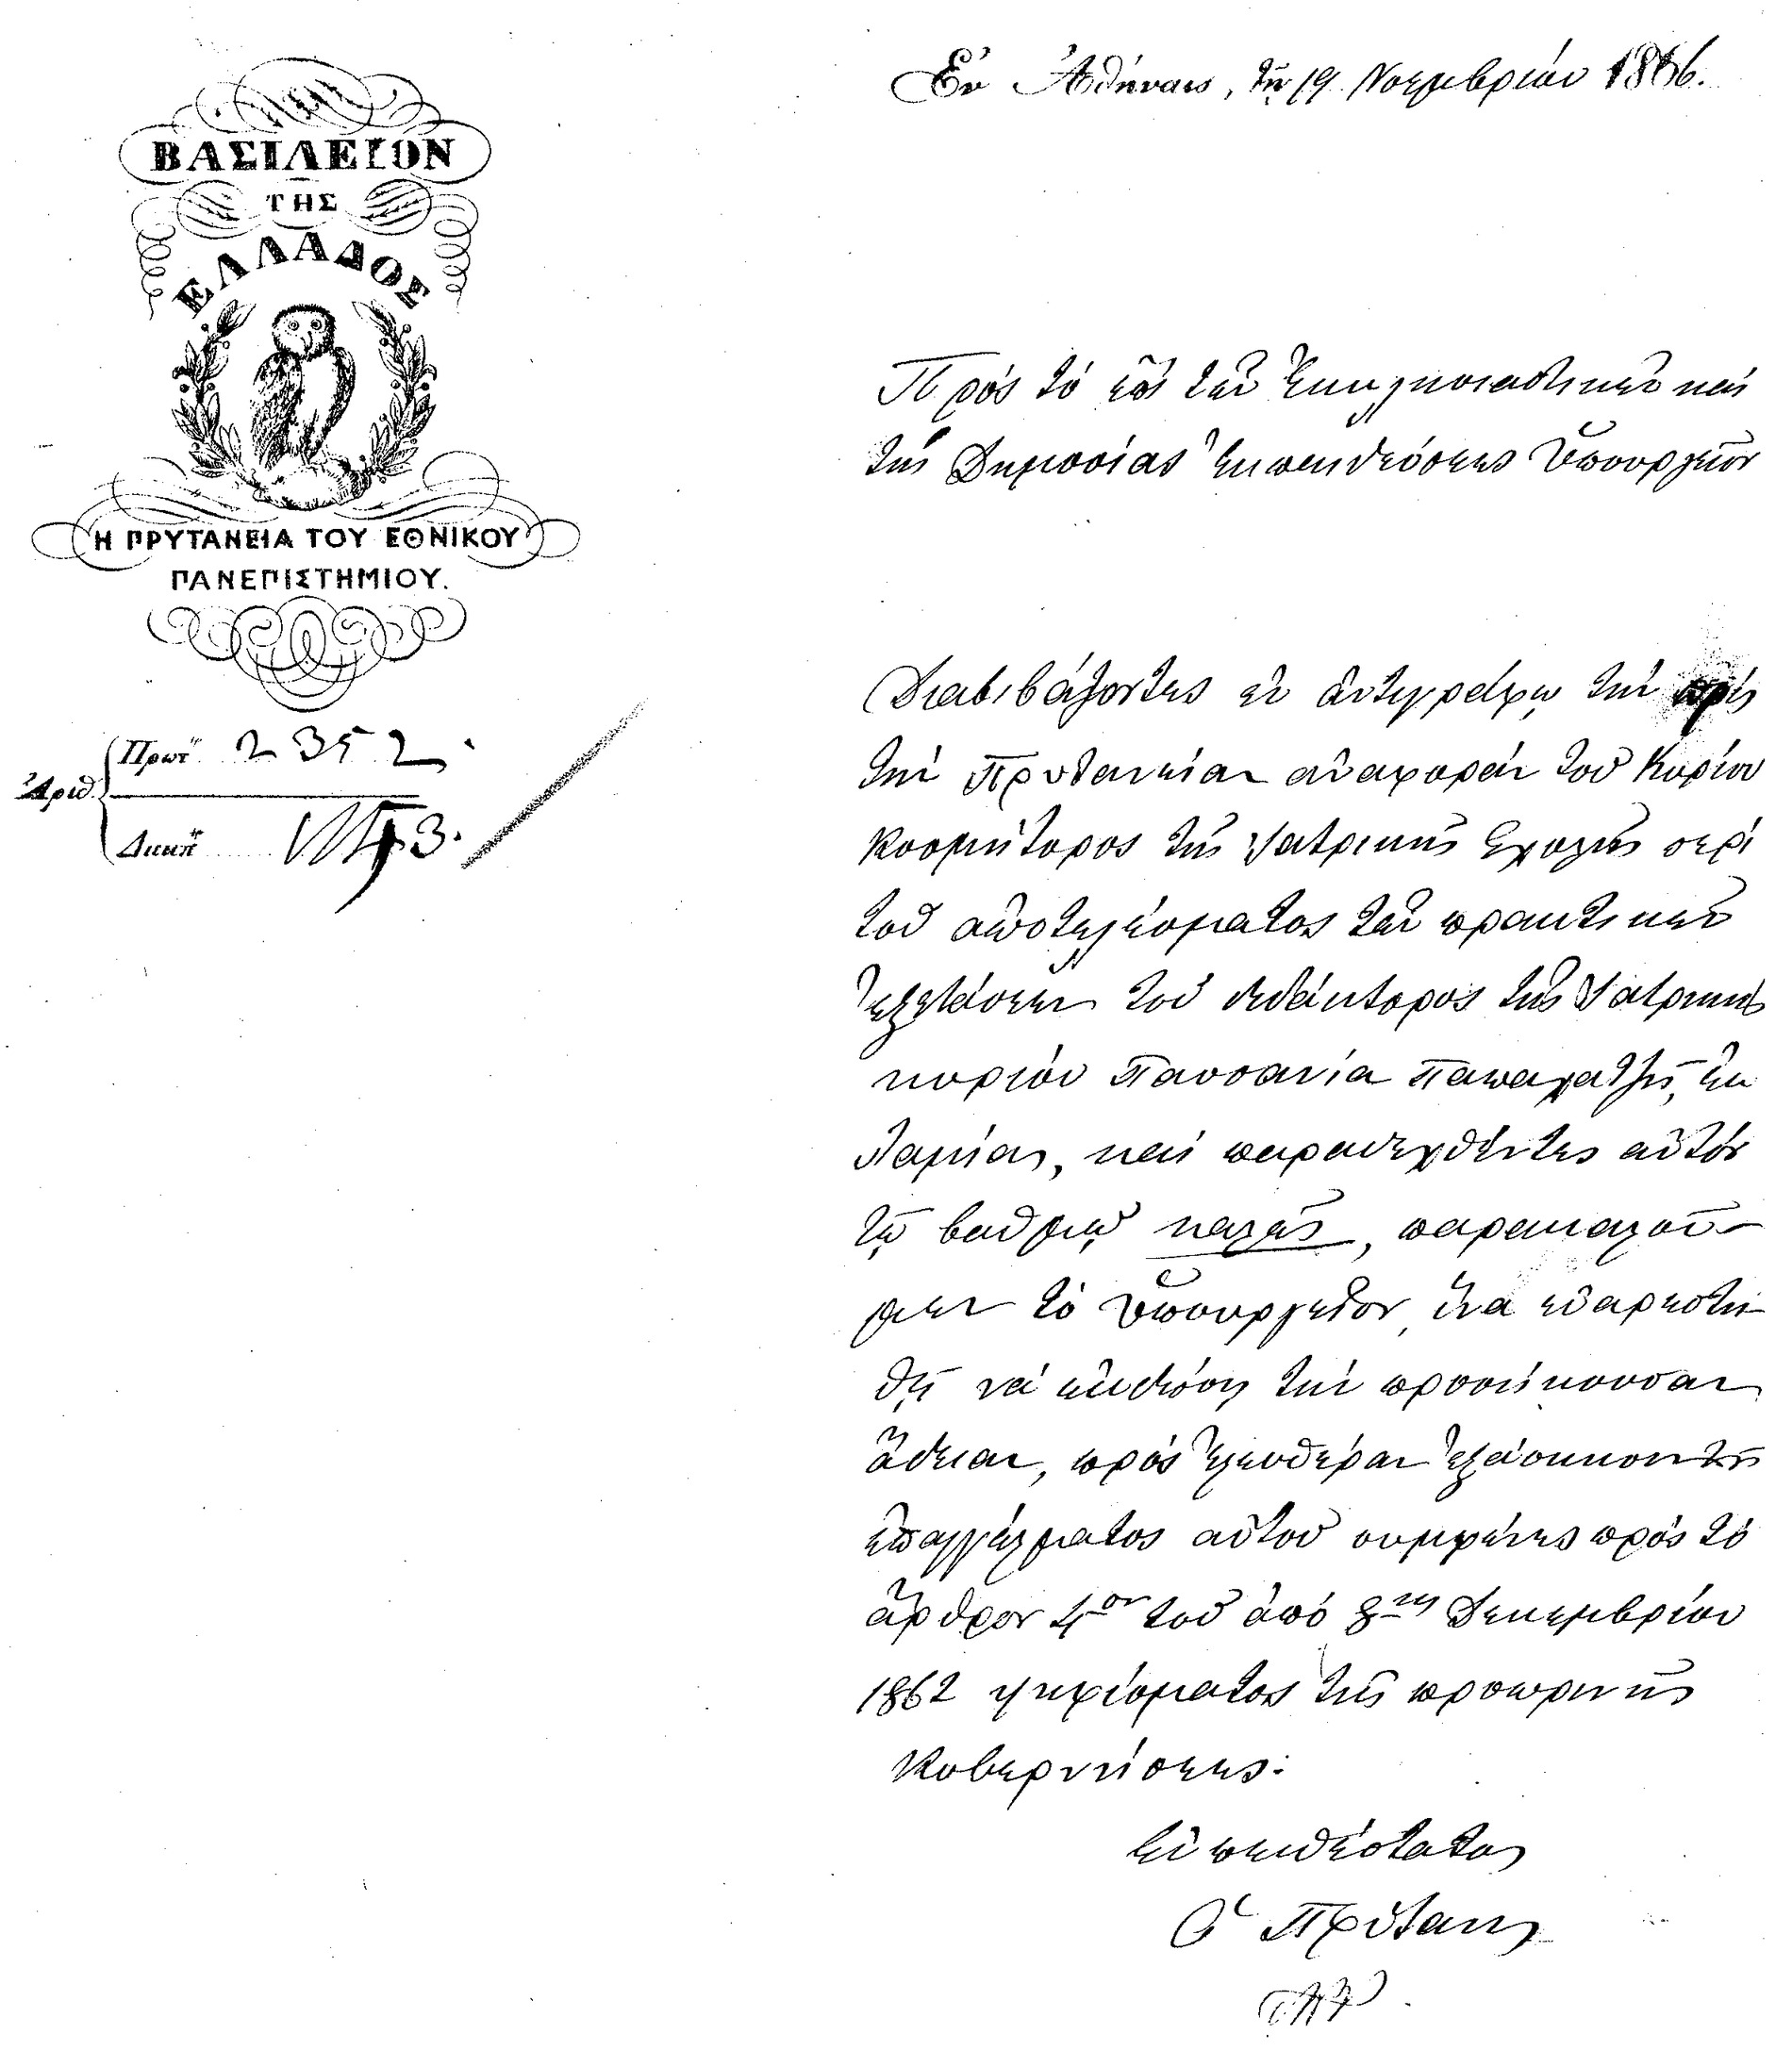 ΒΑΣΙΛΕΙΟΝ
ΤΗΣ
ΕΛΛΑΔΟΣ
Η ΠΡΥΤΑΝΕΙΑ ΤΟΥ ΕΘΝΙΚΟΥ
ΠΑΝΕΠΙΣΤΗΜΙΟΥ.
Ἀριθ.
Πρωτ. 2352
Διεκπ.
Ἐν Ἀθήναις, τῇ 19 Νοεμβρίου 1866.
Πρὸς τὸ ἐπὶ τῶν Ἐκκλησιαστικῶν καὶ
τῆς Δημοσίας Ἐκπαιδεύσεως Ὑπουργεῖον
Διαβιβάζοντες ἐν ἀντιγράφῳ τὴν πρὸς
τὴν Πρυτανείαν ἀναφορὰν τοῦ Κυρίου
Κοσμήτορος τῆς Ἰατρικῆς Σχολῆς περὶ
τοῦ ἀποτελέσματος τῶν πρακτικῶν
ἐξετάσεων τοῦ διδάκτορος τῆς Ἰατρικῆς
κυρίου Παυσανία ἐκ
Λαμίας, καὶ παραδεχθέντες αὐτὸν
τῷ βαθμῷ καλῶς, παρακαλοῦ-
μεν τὸ Ὑπουργεῖον, ἵνα εὐαρεστη-
θῇ νὰ ἐκδώσῃ τὴν προσήκουσαν
ἄδειαν, πρὸς ἐλευθέραν ἐξάσκησιν τοῦ
ἐπαγγέλματος αὐτοῦ συμφώνως πρὸς τὸ
ἄρθρον 4ον τοῦ ἀπὸ 8ης Δεκεμβρίου
1862 ψηφίσματος τῆς προσωρινῆς
Κυβερνήσεως.
Εὐπειθέστατος
Ὁ Πρύτανις